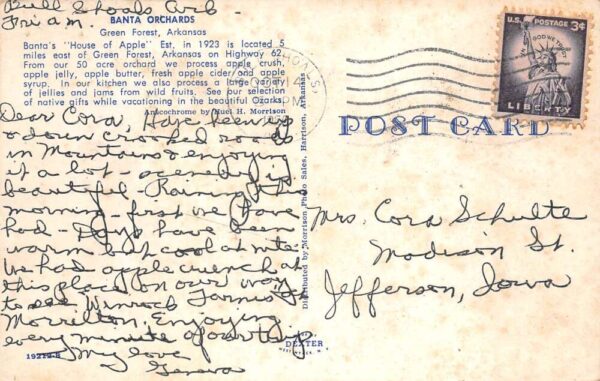 Bull Shoals Ark-
Fri am.
BANTA ORCHARDS
Green Forest, Arkansas
Banta's "House of Apple" Est. in 1923 is located 5
miles east of Green Forest, Arkansas on Highway 62.
From our 50 acre orchard we process apple crush,
apple jelly, apple butter, fresh apple cider and apple
syrup. In our kitchen we also process a large variety
of jellies and jams from wild fruits. See our selection
of native gifts while vacationing in the beautiful Ozarks.
Anscochrome by Huel H. Morrison
Dear Cora,
& down crooked roads
in Mountains & enjoying
it a lot - scenery is
beautiful - Raining this
morning - first we have
had - Days have been
warm but cool at nite.
We had apple crunch at
this place on our way
to see Winrock Farms
Morrilton. Enjoying
every minute of our trip
My love
Geneva
19222-B
Distributed by Morrison Photo Sales, Harrison, Arkansas
DEXTER
U.S. POSTAGE 3¢
IN GOD WE TRUST
LIBERTY
POST CARD
Mrs. Cora Schulte
Madison St.
Jefferson, Iowa